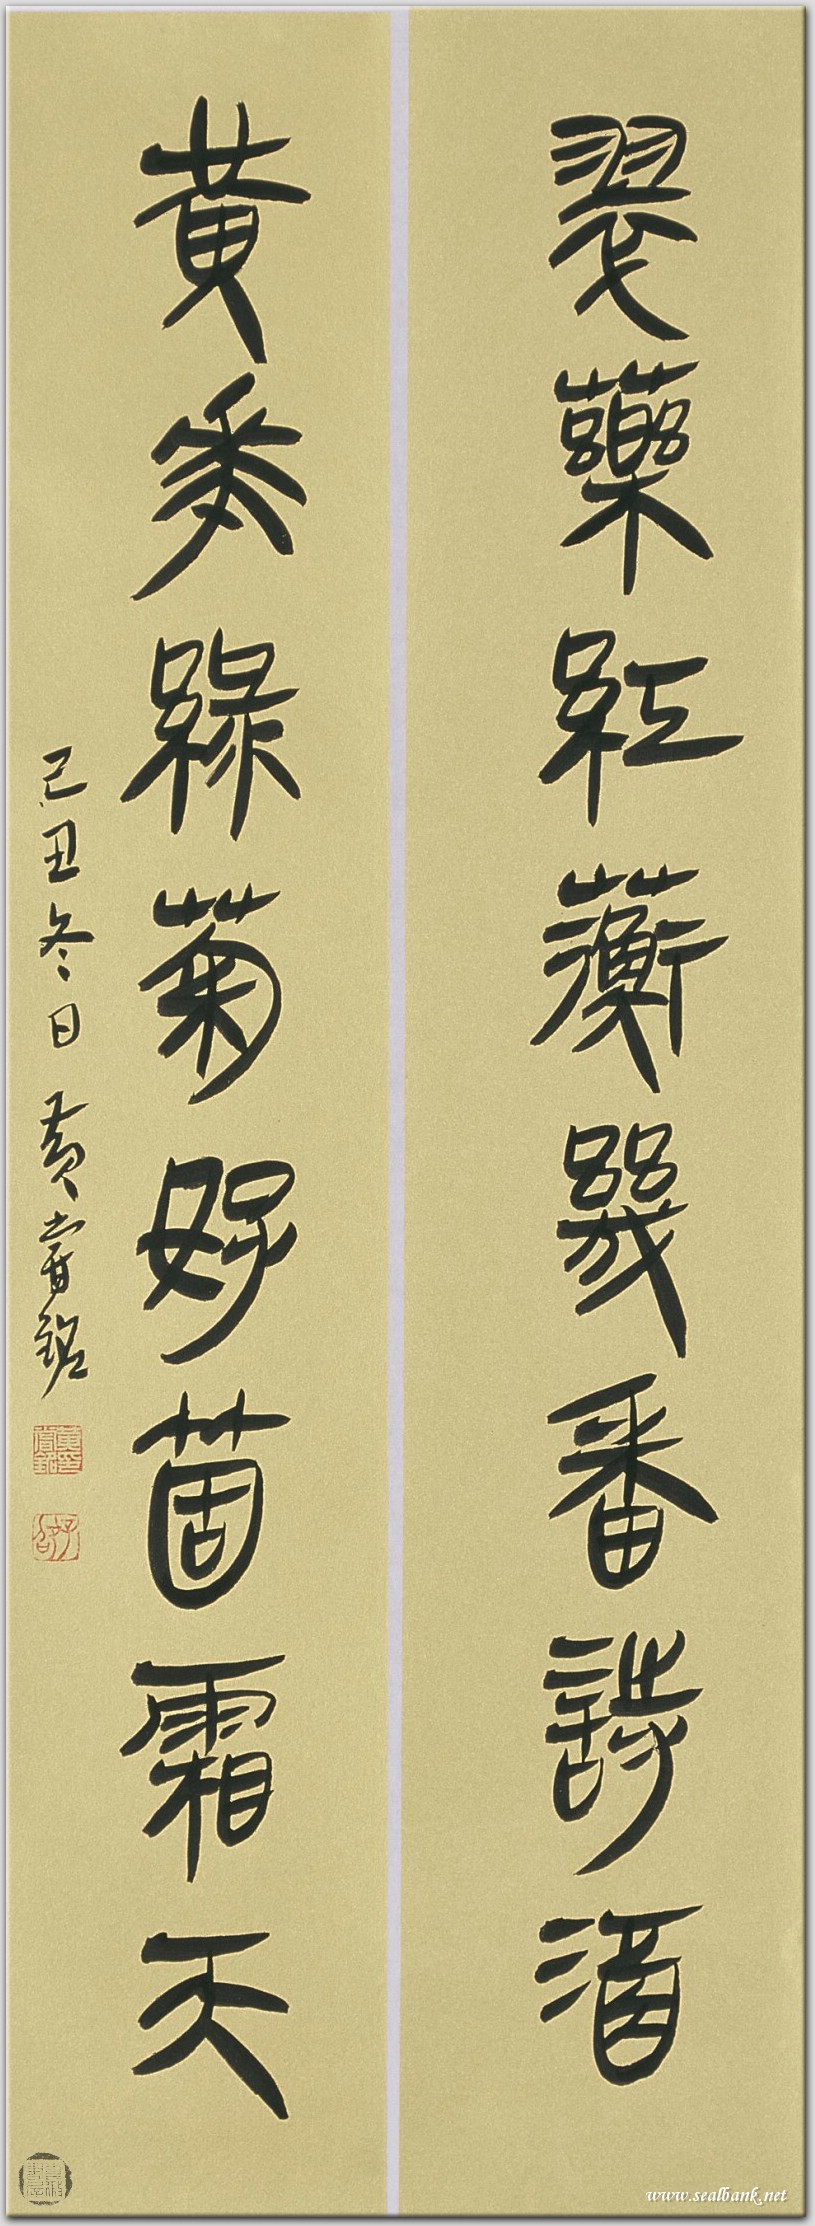 翠藥紅蘅幾番詩酒
黃華綠菊好箇霜天
己丑冬日黃嘗銘
www.sealbank.net